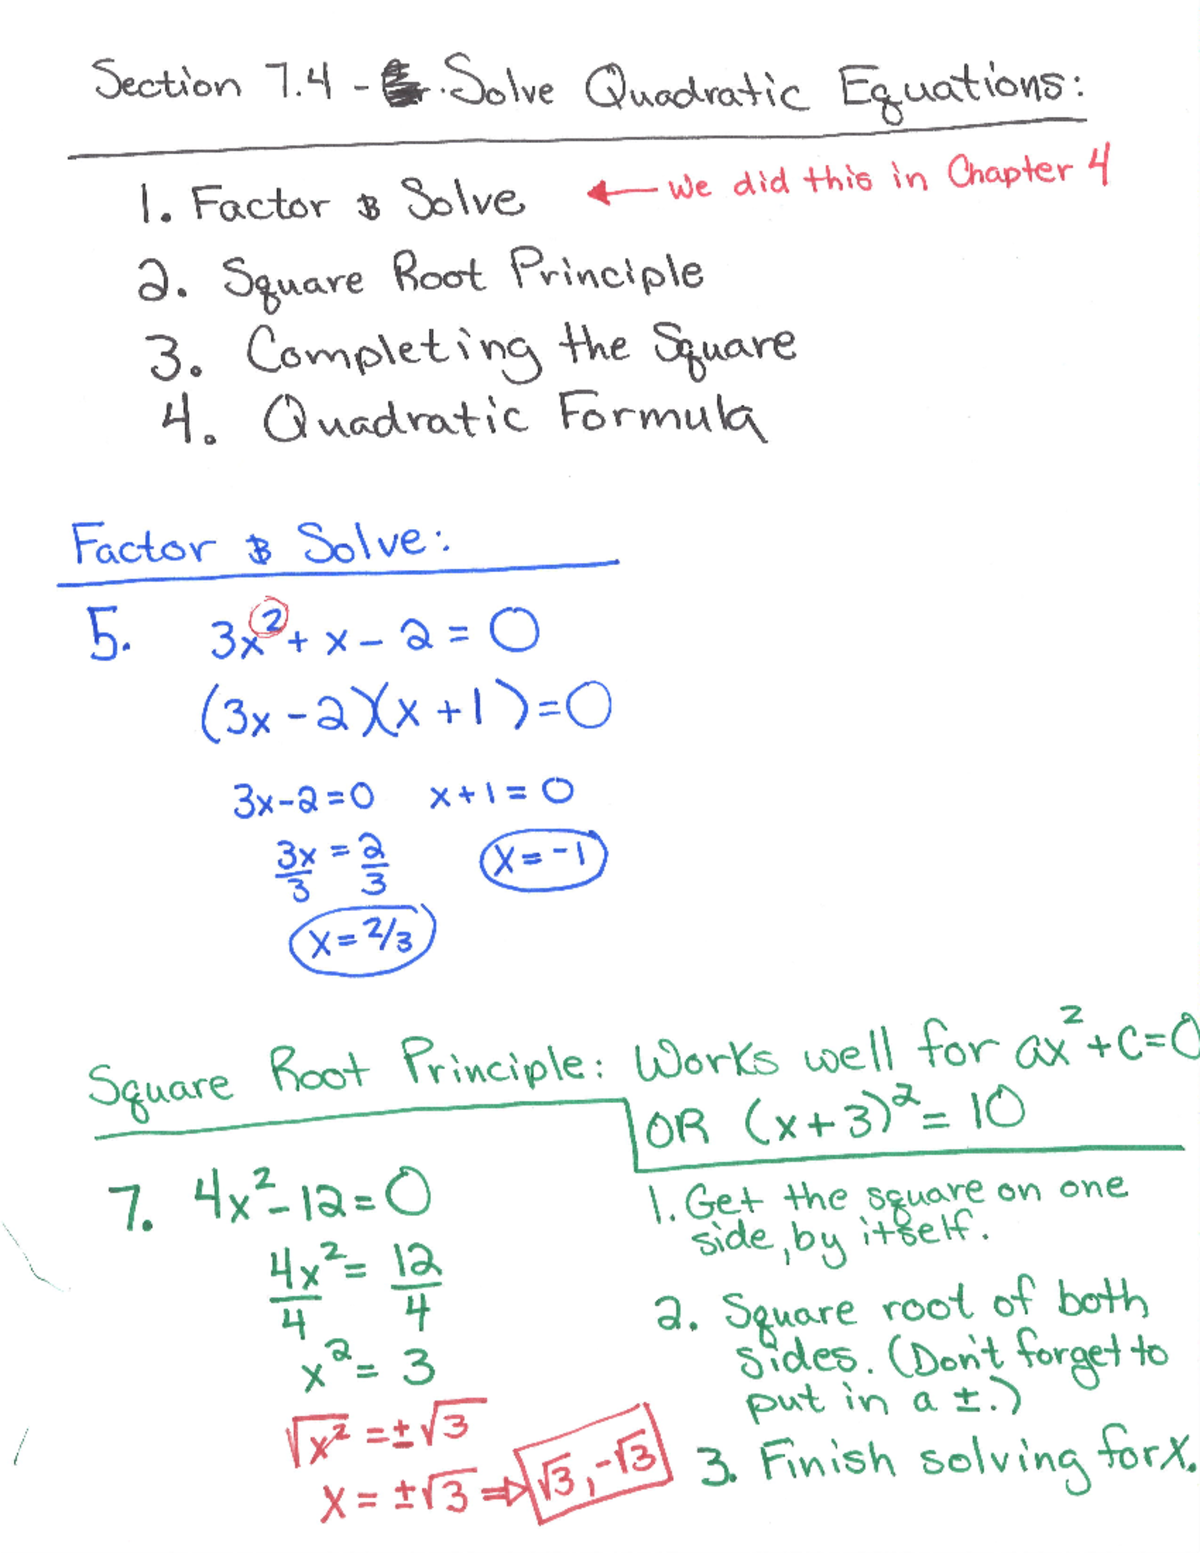 Section 7.4 - Solve Quadratic Equations:
1. Factor & Solve ← we did this in Chapter 4
2. Square Root Principle
3. Completing the Square
4. Quadratic Formula
Factor & Solve:
5. 3x² + x - 2 = 0
(3x - 2)(x + 1) = 0
3x - 2 = 0 x + 1 = 0
3x/3 = 2/3 x = -1
x = 2/3
Square Root Principle: Works well for ax² + c = 0
OR (x + 3)² = 10
7. 4x² - 12 = 0
4x²/4 = 12/4
x² = 3
√x² = ±√3
x = ±√3 ⇒ √3, -√3
1. Get the square on one
side, by itself.
2. Square root of both
sides. (Don't forget to
put in a ±.)
3. Finish solving for x.